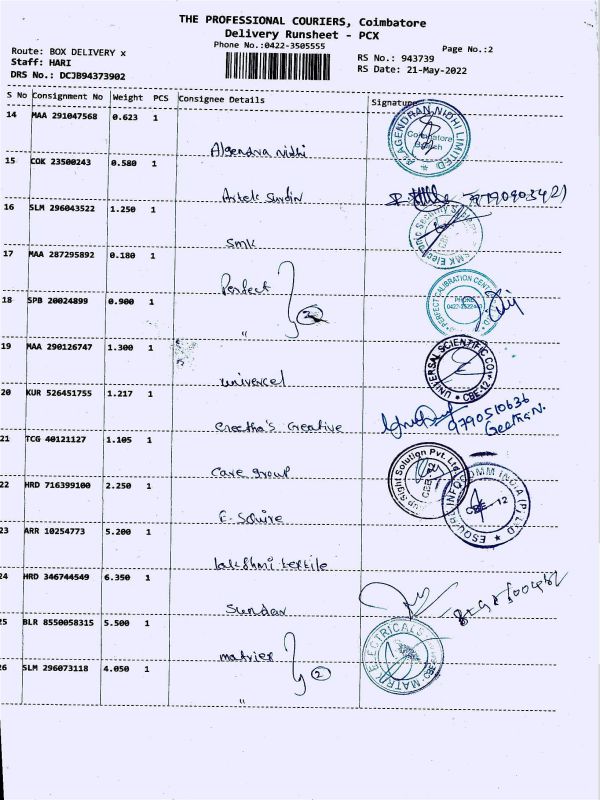 THE PROFESSIONAL COURIERS, Coimbatore
Delivery Runsheet - PCX
Phone No.:0422-3505555
Page No.:2
Route: BOX DELIVERY x
Staff: HARI
DRS No.: DCJB94373902
RS No.: 943739
RS Date: 21-May-2022
S No Consignment No Weight PCS Consignee Details Signature
14 MAA 291047568 0.623 1
Algendra nidhi
ALAGENDRAN NIDHI LIMITED
Coimbatore
Branch
15 COK 23500243 0.580 1
16 SLM 296043522 1.250 1
SMK
17 MAA 287295892 0.180 1
Perfect
2
PERFECT CALIBRATION CENTRE
PHONE
18 SPB 20024899 0.900 1
"
19 MAA 290126747 1.300 1
univercel
UNIVERSAL SCIENTIFIC CO
CBE-12
20 KUR 526451755 1.217 1
Creetha's Creative
9790510636
Geetha N.
21 TCG 40121127 1.105 1
Care group
Sight Solution Pvt. Ltd
CBE-12
22 HRD 716399100 2.250 1
E-Squire
ESQUIRE INFOCOMM INDIA (P) LTD
CBE-12
23 ARR 10254773 5.200 1
lakshmi textile
24 HRD 346744549 6.350 1
Sundar
25 BLR 8550058315 5.500 1
matrier
2
MATRIX ELECTRICALS
26 SLM 296073118 4.050 1
"